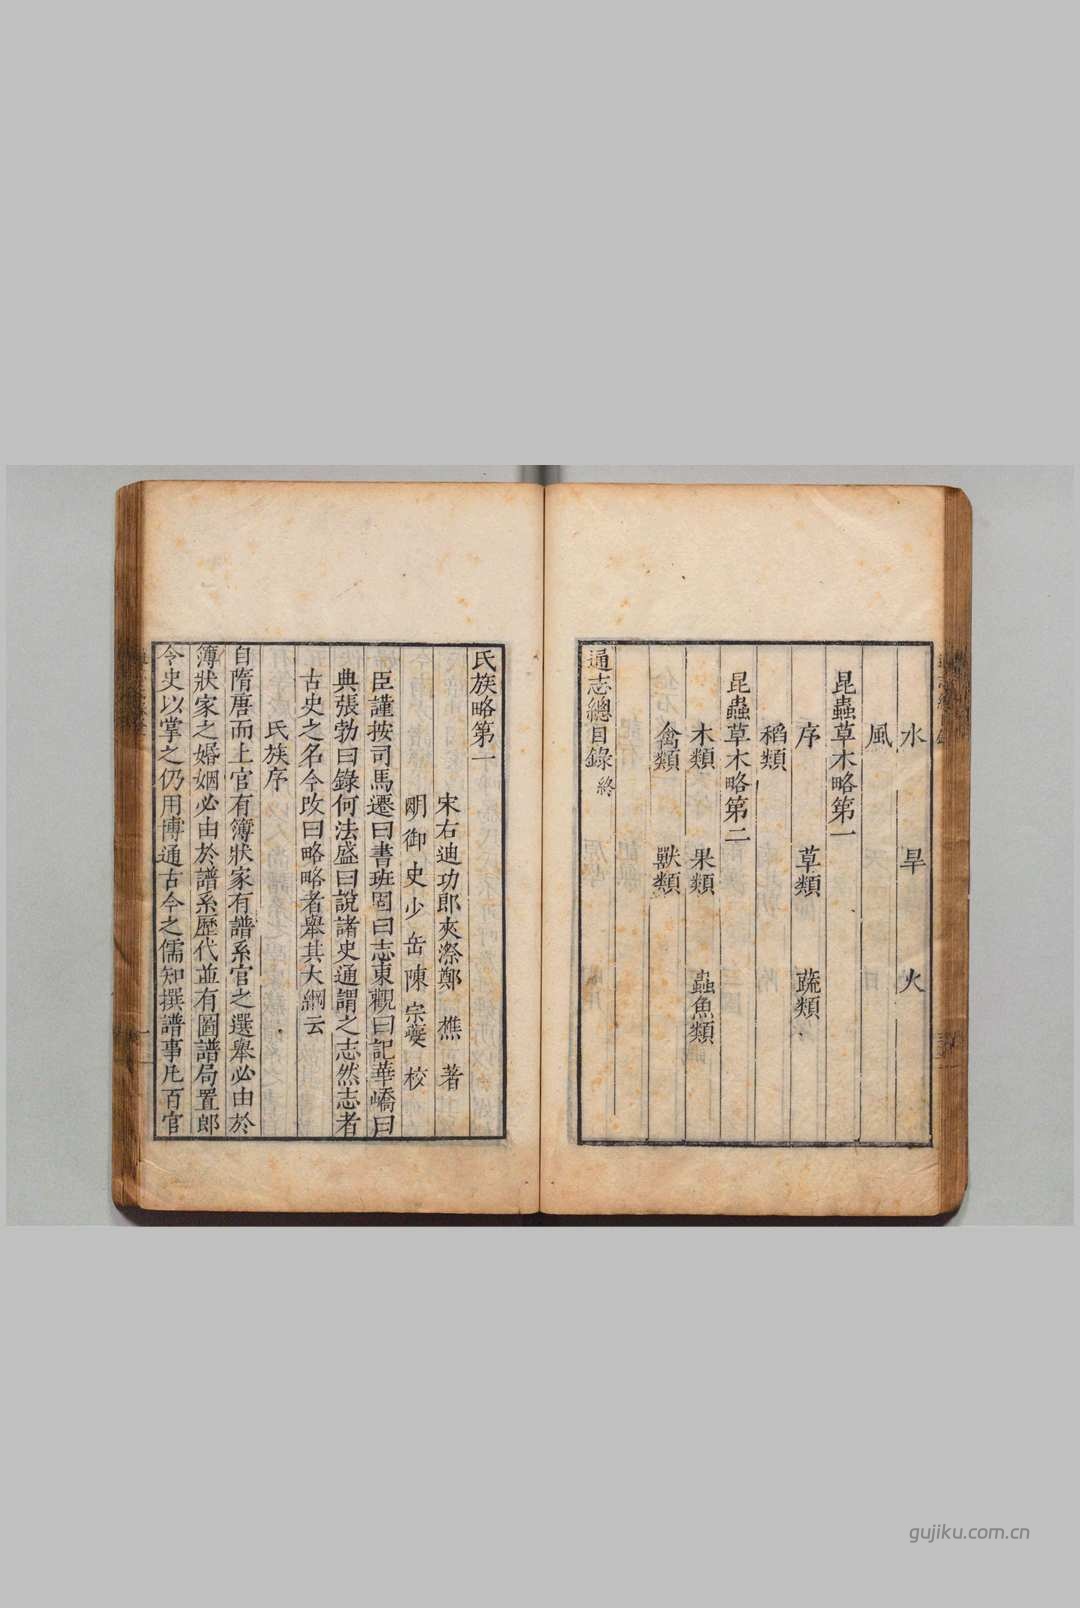 水 旱 火
風
昆蟲草木略第一
序 草類 蔬類
稻類
昆蟲草木略第二
木類 果類 蟲魚類
禽類 獸類
通志總目錄終
氏族略第一
宋右迪功郎夾漈鄭 樵 著
明御史少岳陳 宗夔 校
臣謹按司馬遷曰書班固曰志東觀曰記華嶠曰
典張勃曰錄何法盛曰說諸史通謂之志然志者
古史之名今改曰略略者舉其大綱云
氏族序
自隋唐而上官有簿狀家有譜系官之選舉必由於
簿狀家之婚姻必由於譜系歷代並有圖譜局置郎
令史以掌之仍用博通古今之儒知撰譜事凡百官
gujiku.com.cn